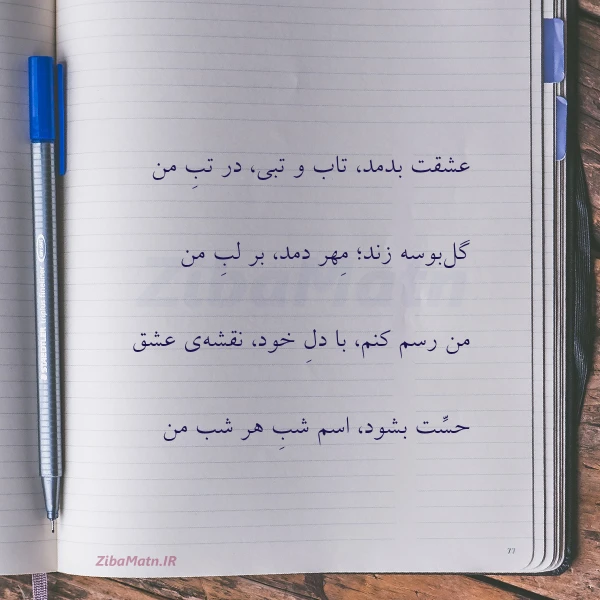 عشقت بدمد، تاب و تبی، در تبِ من
گل‌بوسه زند؛ مِهر دمد، بر لبِ من
من رسم کنم، با دلِ خود، نقشه‌ی عشق
حسِّت بشود، اسم شبِ هر شب من
ZibaMatn
77
ZibaMatn.IR